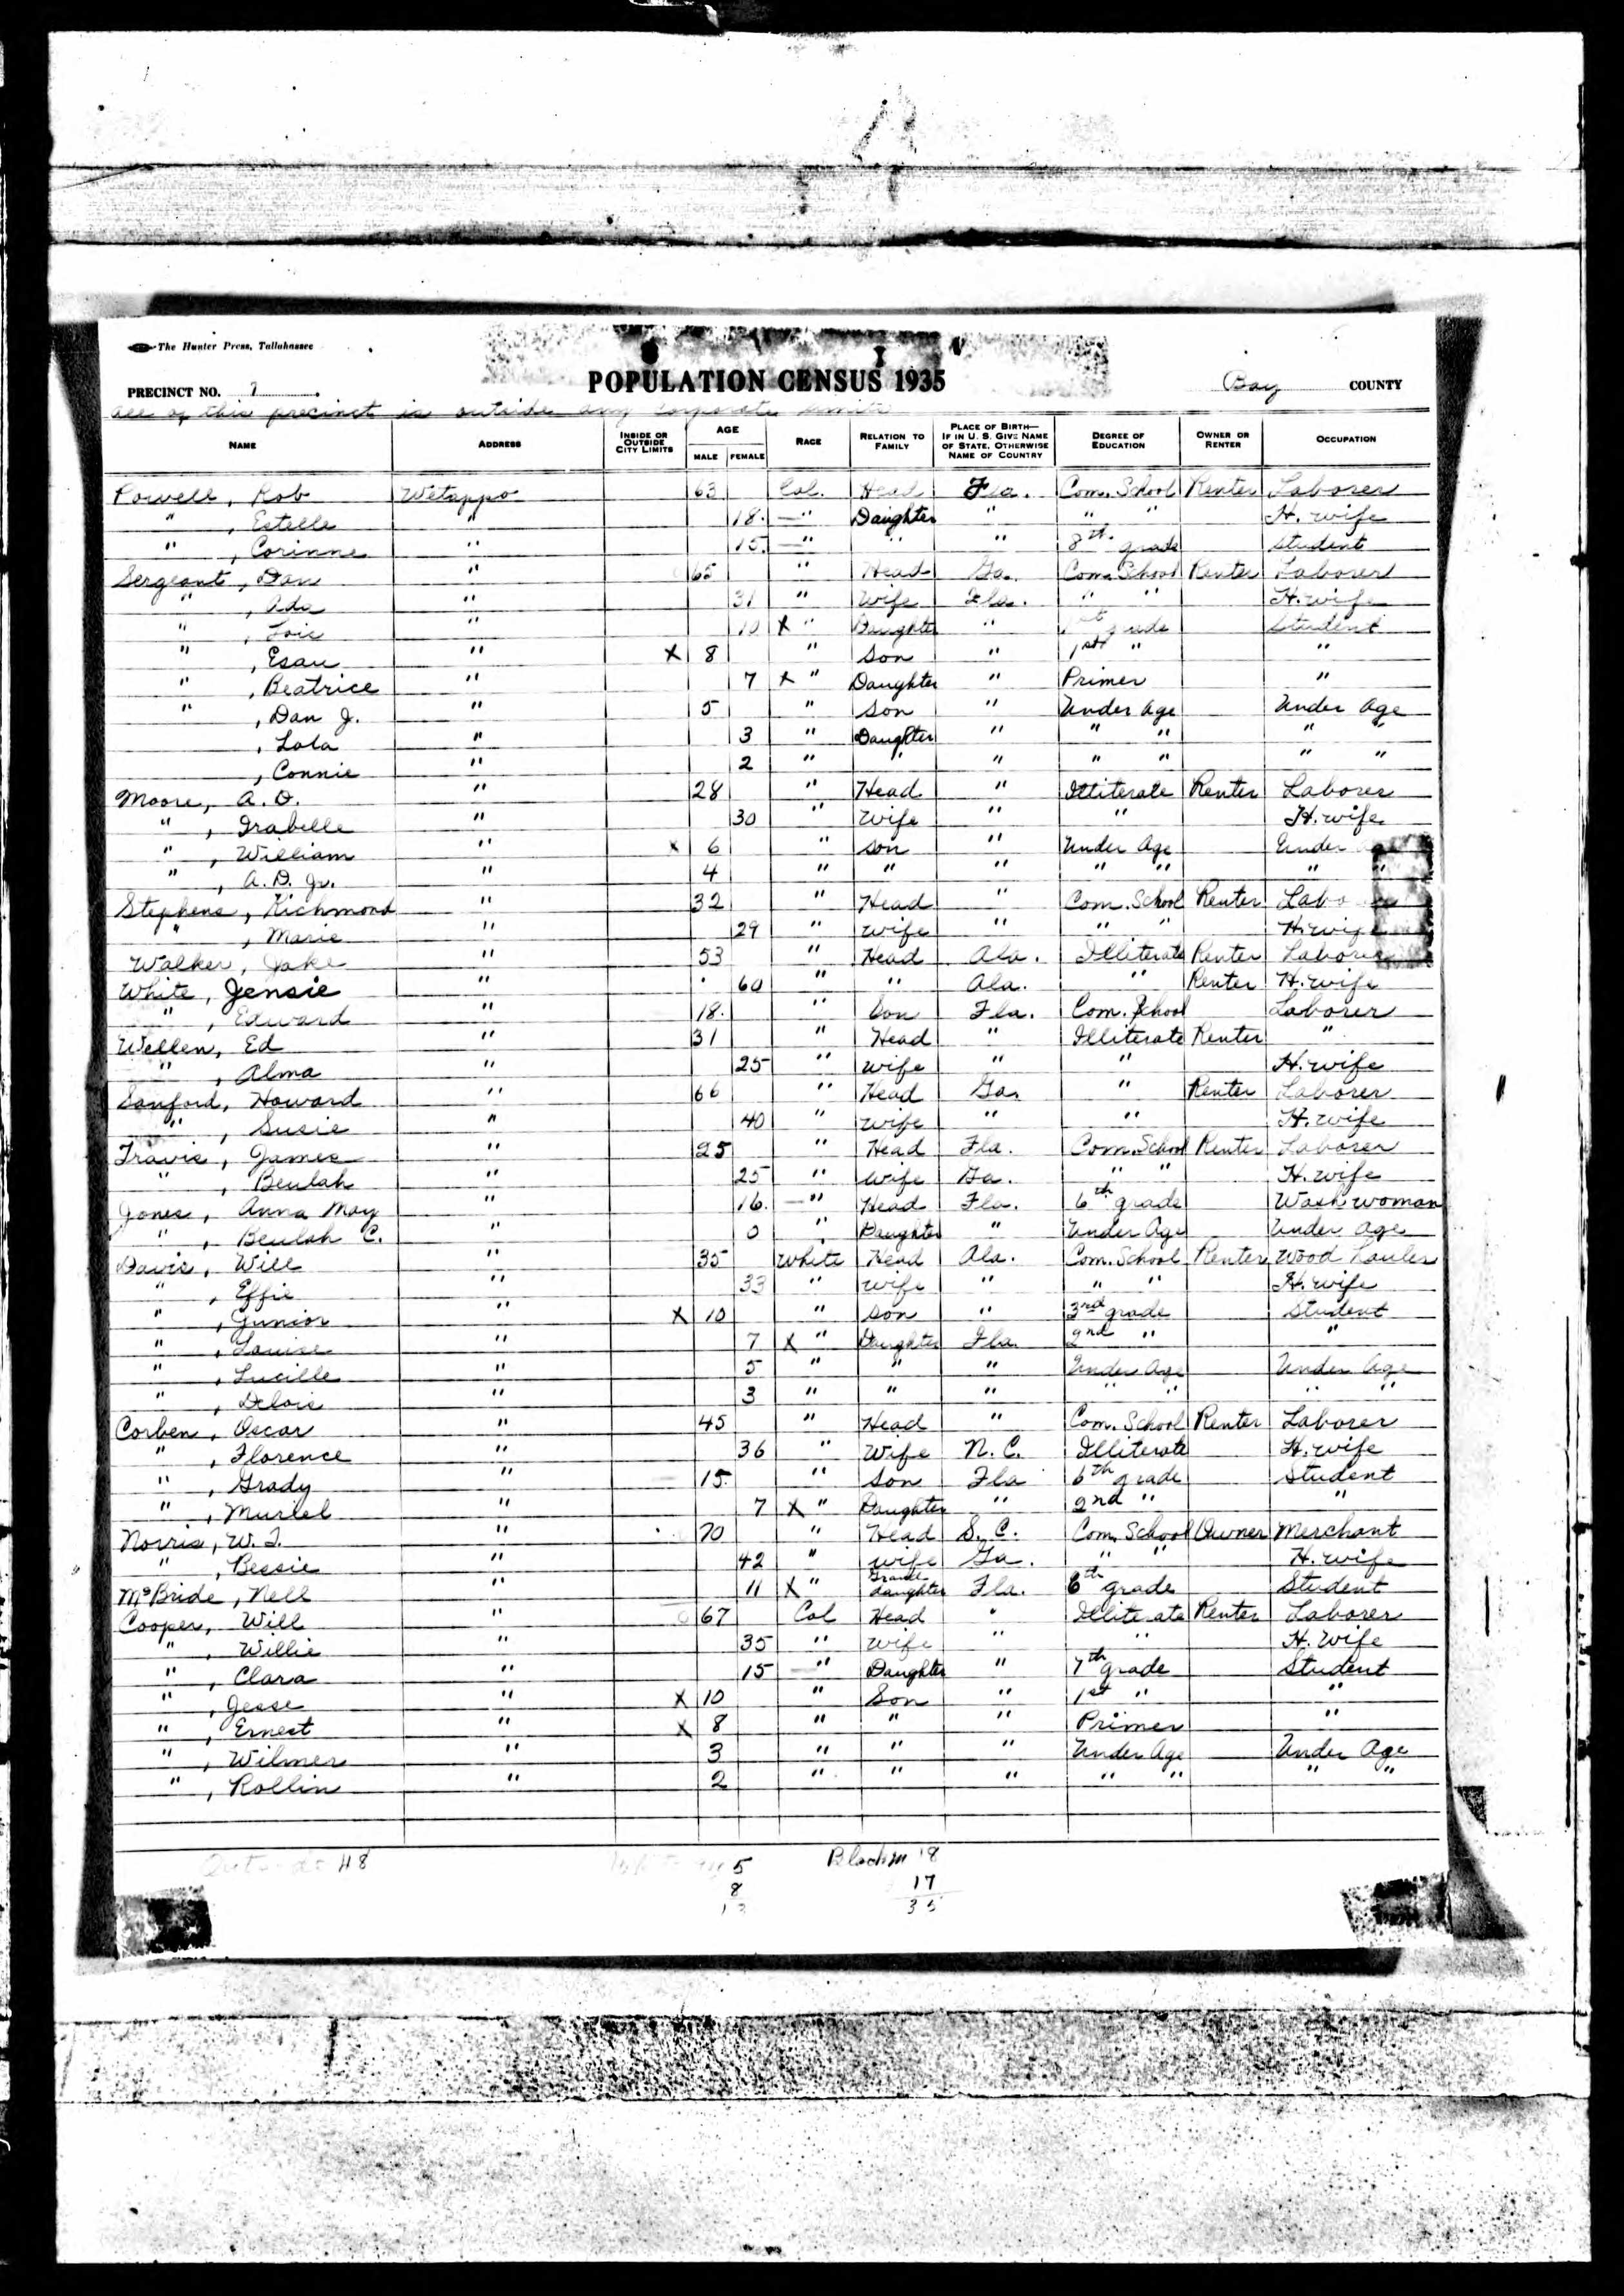 The Hunter Press, Tallahassee
POPULATION CENSUS 1935
PRECINCT NO. 7
Bay COUNTY
all of this precinct is outside any corporate limits
NAME ADDRESS INSIDE OR OUTSIDE CITY LIMITS AGE MALE FEMALE RACE RELATION TO FAMILY PLACE OF BIRTH—IF IN U. S. GIVE NAME OF STATE. OTHERWISE NAME OF COUNTRY DEGREE OF EDUCATION OWNER OR RENTER OCCUPATION
Powell, Rob Wetappo 63 Col. Head Fla. Com. School Renter Laborer
" , Estelle " 18. —" Daughter " " " H. wife
" , Corinne " 15. —" " " 8th grade student
Sergeant, Dan " 65 " Head Ga. Com. School Renter Laborer
" , Ada " 31 " Wife Fla. " " H. wife
" , Lois " 10 X " Daughter " 1st grade student
" , Esau " X 8 " Son " 1st " "
" , Beatrice " 7 X " Daughter " Primer "
" , Dan J. " 5 " Son " Under Age Under Age
, Lola " 3 " Daughter " " " " "
, Connie " 2 " " " " " " "
Moore, A. D. " 28 " Head " Illiterate Renter Laborer
" , Irabelle " 30 " Wife " " H. wife
" , William " X 6 " son " Under Age Under Age
" , A. D. Jr. " 4 " " " " " " "
Stephens, Richmond " 32 " Head " Com. School Renter Labo
" , Marie " 29 " wife " " " H. wife
Walker, Jake " 53 " Head Ala. Illiterate Renter Laborer
White, Jensie " 60 " " Ala. " Renter H. wife
" , Edward " 18. " Son Fla. Com. School Laborer
Wellen, Ed " 31 " Head " Illiterate Renter "
" , Alma " 25 " wife " " H. wife
Sanford, Howard " 66 " Head Ga. " Renter Laborer
" , Susie " 40 " wife " " H. wife
Travis, James " 25 " Head Fla. Com. School Renter Laborer
" , Beulah " 25 " wife Ga. " " H. wife
Jones, Anna May " 16. —" Head Fla. 6th grade Wash woman
" , Beulah C. " 0 " Daughter " Under Age Under Age
Davis, Will " 35 White Head Ala. Com. School Renter Wood Hauler
" , Effie " 33 " wife " " " H. wife
" , Junior " X 10 " son " 3rd grade Student
" , Louise " 7 X " Daughter Fla. 2nd " "
" , Lucille " 5 " " " Under Age Under Age
" , Delois " 3 " " " " " " "
Corben, Oscar " 45 " Head " Com. School Renter Laborer
" , Florence " 36 " Wife N. C. Illiterate H. wife
" , Grady " 15. " Son Fla 6th grade Student
" , Muriel " 7 X " Daughter " 2nd " "
Norris, W. T. " 70 " Head S. C. Com. School Owner Merchant
" , Bessie " 42 " wife Ga. " " H. wife
McBride, Nell " 11 X " Grand daughter Fla. 6th grade Student
Cooper, Will " 67 Col Head " Illiterate Renter Laborer
" , Willie " 35 " wife " " H. Wife
" , Clara " 15 —" Daughter " 7th grade Student
" , Jesse " X 10 " Son " 1st " "
" , Ernest " X 8 " " " Primer "
" , Wilmer " 3 " " " Under Age Under Age
" , Rollin " 2 " " " " " " "
Outside 48 White m 5 Black m 18
8 17
13 35